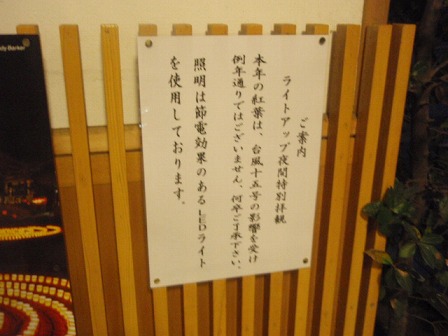 ご案内
ライトアップ夜間特別拝観
本年の紅葉は、台風十五号の影響を受け
例年通りではございません。何卒ご了承下さい。
照明は節電効果のあるLEDライト
を使用しております。